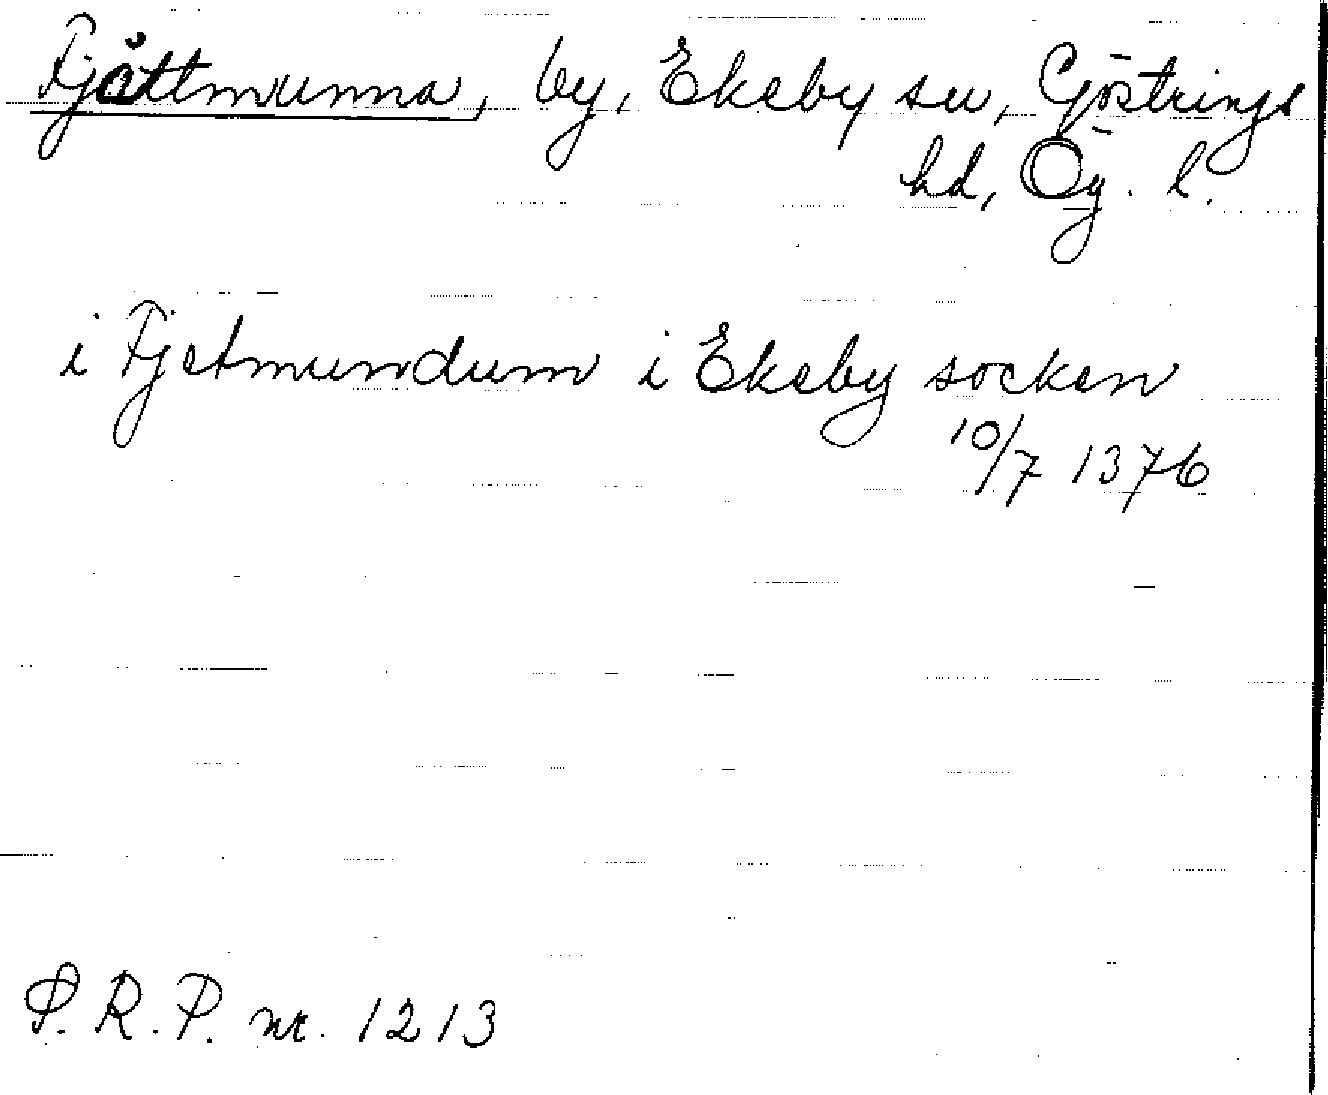 Fjättmunna, by, Ekeby sn, Göstrings
hd, Ög. l.
i Fjetmundum i Ekeby socken
10/7 1376
S.R.P. nr. 1213